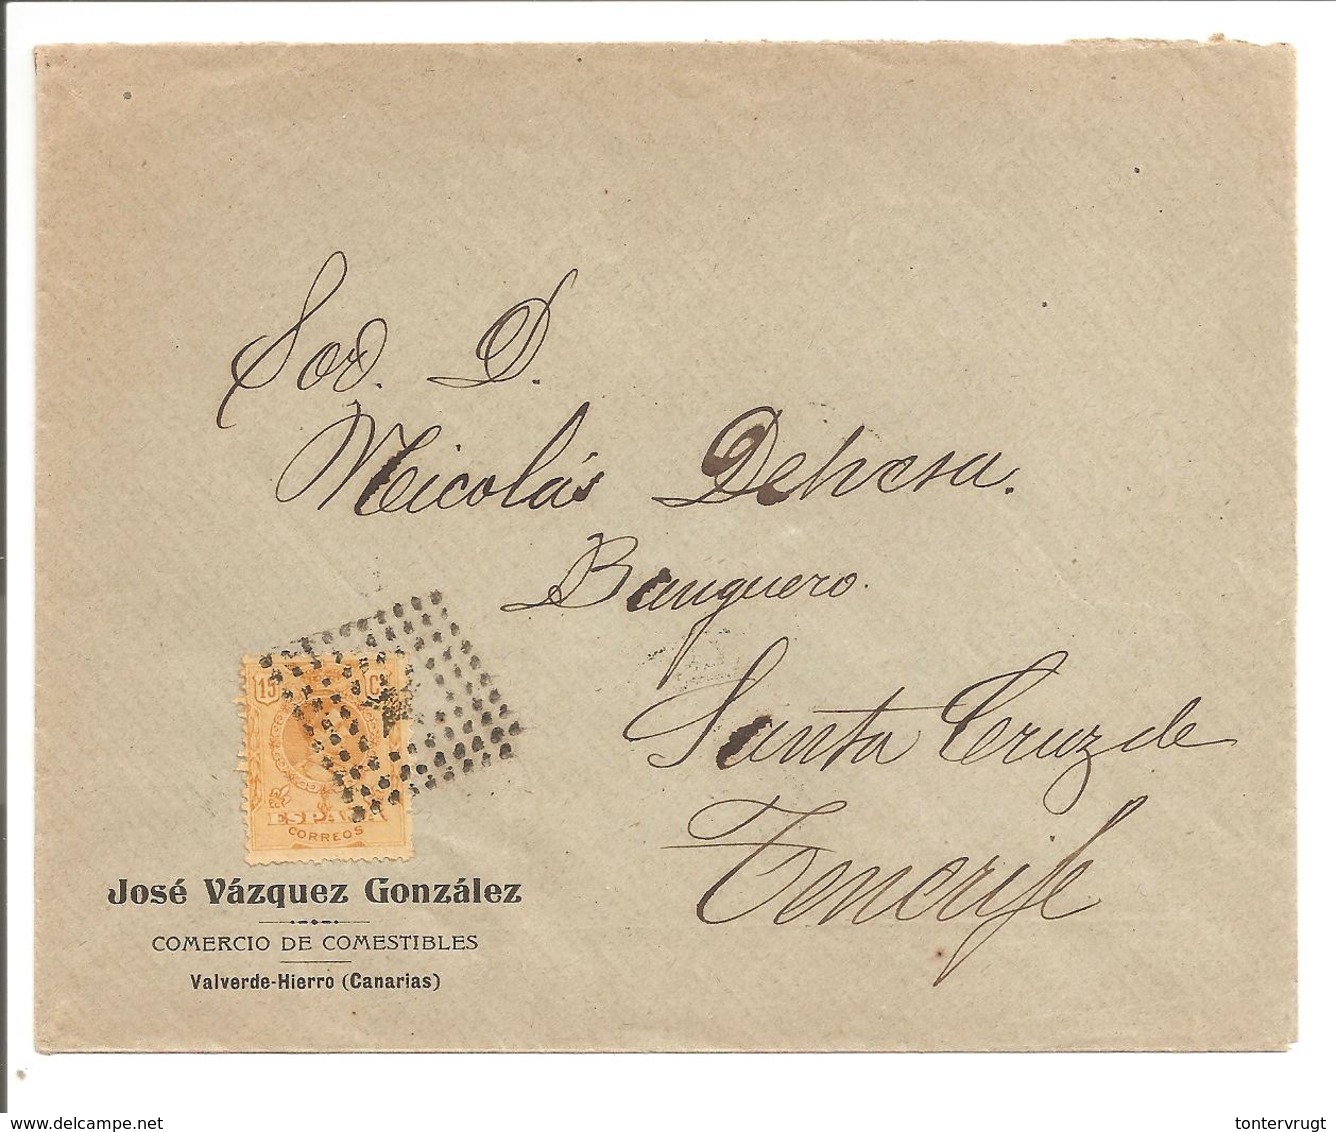 Sor. D.
Nicolás Dehesa.
Banquero.
Santa Cruz de
Tenerife
15 C
ESPAÑA
CORREOS
José Vázquez González
COMERCIO DE COMESTIBLES
Valverde-Hierro (Canarias)
delcampe.net
tontervrugt